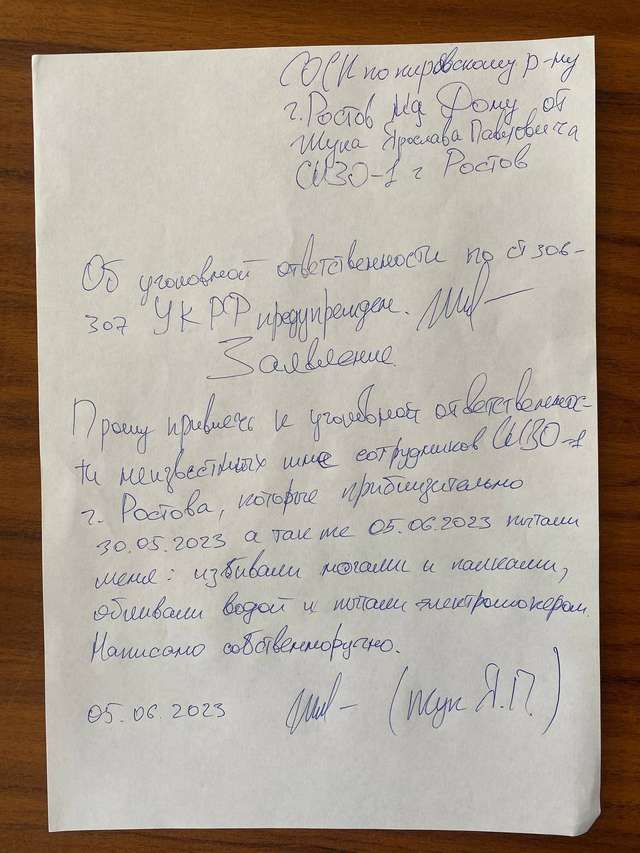 СОСК по кировскому р-ну
г. Ростов на Дону от
Жука Ярослава Павловича
СИЗО-1 г Ростов
Об уголовной ответственности по ст 306-
307 УК РФ предупрежден.
Заявление.
Прошу привлечь к уголовной ответственнос-
ти неизвестных мне сотрудников СИЗО-1
г. Ростова, которые приблизительно
30.05.2023 а так же 05.06.2023 пытали
меня: избивали ногами и палками,
обливали водой и пытали электрошокером.
Написано собственноручно.
05.06.2023 (Жук Я.П.)